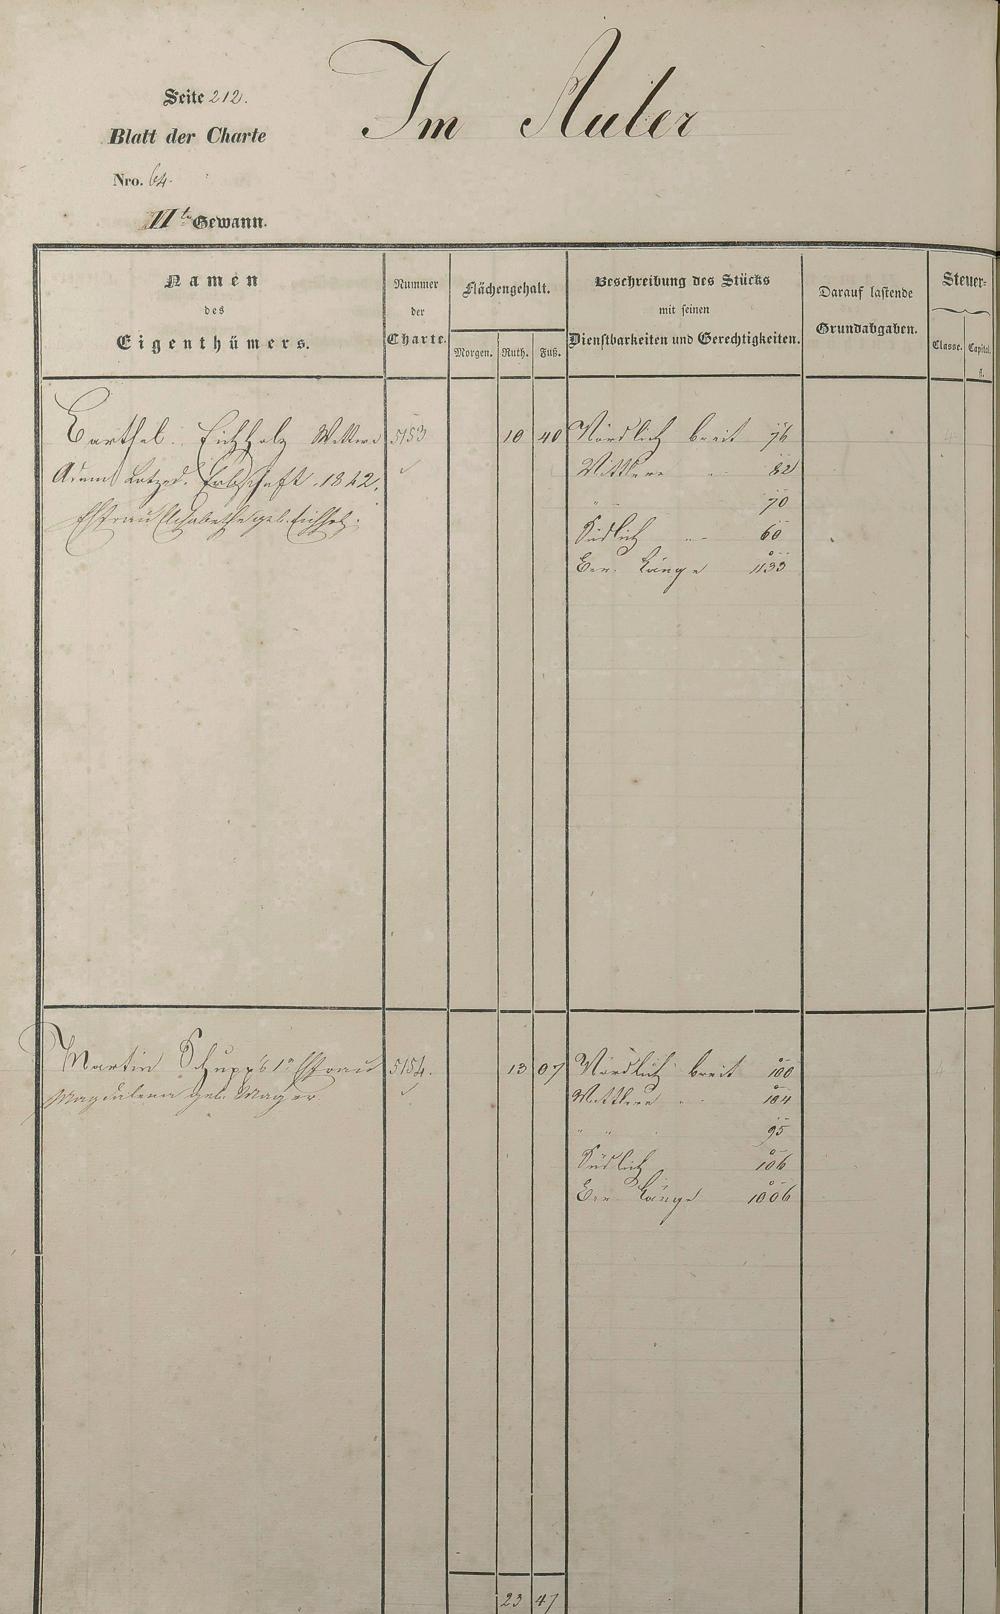 Im Auler
Seite 212.
Blatt der Charte
Nro. 64.
II te Gewann.
Namen
des
Eigenthümers.
Nummer
der
Charte.
Flächengehalt.
Morgen. Ruth. Fuß.
Beschreibung des Stücks
mit seinen
Dienstbarkeiten und Gerechtigkeiten.
Darauf lastende
Grundabgaben.
Steuer-
Classe. Capital.
fl.
Barthel Eichholz Wittwe 5153 10 40 Nördlich breit 76
Adam Erbschaft 1842. Mittlere 82
Ehefrau Elisabetha geb. Eichholz. " 70
Südlich " 60
Länge 1133
Martin Schupp's 1r Ehefrau 5154. 13 07 Nördlich breit 100
Magdalena geb. Mayer Mittlere 104
" " 95
Südlich 106
Länge 1006
23 47